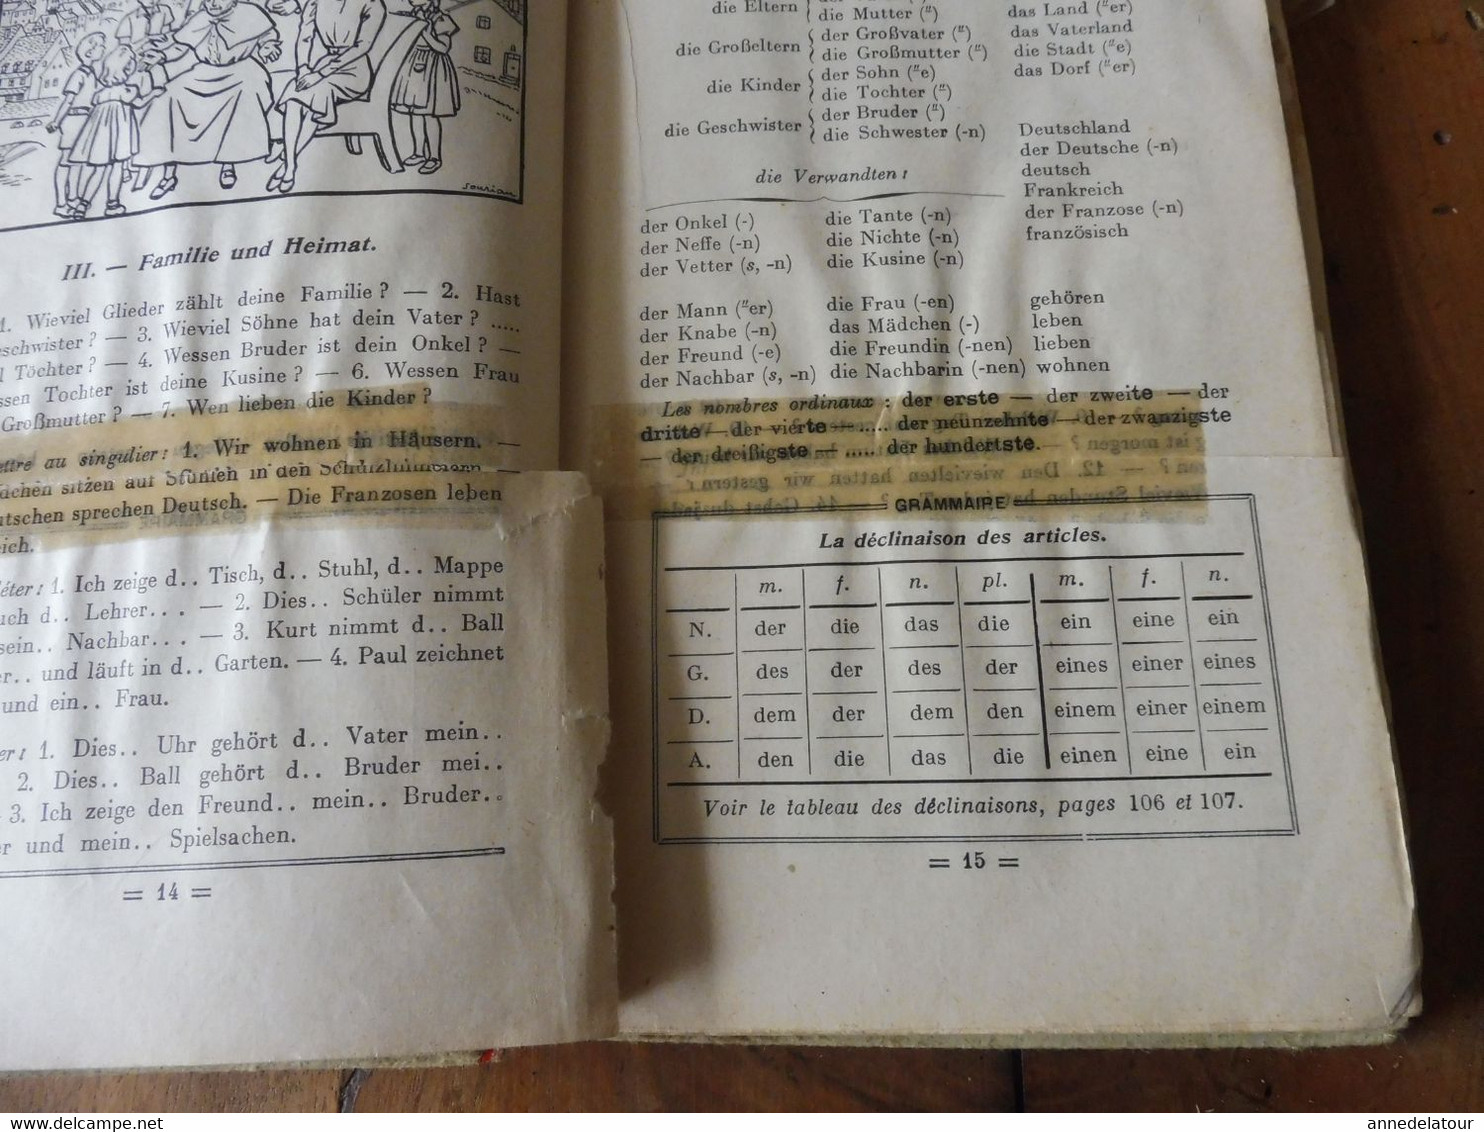 Sourian
III. — Familie und Heimat.
1. Wieviel Glieder zählt deine Familie ? — 2. Hast
? — 3. Wieviel Söhne hat dein Vater ? .....
Töchter ? — 4. Wessen Bruder ist dein Onkel ? —
Tochter ist deine Kusine ? — 6. Wessen Frau
Großmutter ? — 7. Wen lieben die Kinder ?
au singulier : 1. Wir wohnen in Häusern. —
sitzen auf Stühlen in den Schulzimmern —
sprechen Deutsch. — Die Franzosen leben
1. Ich zeige d.. Tisch, d.. Stuhl, d.. Mappe
d.. Lehrer... — 2. Dies.. Schüler nimmt
sein.. Nachbar... — 3. Kurt nimmt d.. Ball
und läuft in d.. Garten. — 4. Paul zeichnet
und ein.. Frau.
1. Dies.. Uhr gehört d.. Vater mein..
2. Dies.. Ball gehört d.. Bruder mei..
3. Ich zeige den Freund.. mein.. Bruder..
und mein.. Spielsachen.
= 14 =
die Eltern
die Mutter (")
die Großeltern
der Großvater (")
die Großmutter (")
die Kinder
der Sohn ("e)
die Tochter (")
die Geschwister
der Bruder (")
die Schwester (-n)
das Land ("er)
das Vaterland
die Stadt ("e)
das Dorf ("er)
Deutschland
der Deutsche (-n)
deutsch
Frankreich
der Franzose (-n)
französisch
die Verwandten :
der Onkel (-) die Tante (-n)
der Neffe (-n) die Nichte (-n)
der Vetter (s, -n) die Kusine (-n)
der Mann ("er) die Frau (-en) gehören
der Knabe (-n) das Mädchen (-) leben
der Freund (-e) die Freundin (-nen) lieben
der Nachbar (s, -n) die Nachbarin (-nen) wohnen
Les nombres ordinaux : der erste — der zweite — der
dritte — der vierte — ..... der neunzehnte — der zwanzigste
— der dreißigste — ..... der hundertste.
GRAMMAIRE
La déclinaison des articles.
m. f. n. pl. m. f. n.
N. der die das die ein eine ein
G. des der des der eines einer eines
D. dem der dem den einem einer einem
A. den die das die einen eine ein
Voir le tableau des déclinaisons, pages 106 et 107.
= 15 =
annedelatour
www.delcampe.net